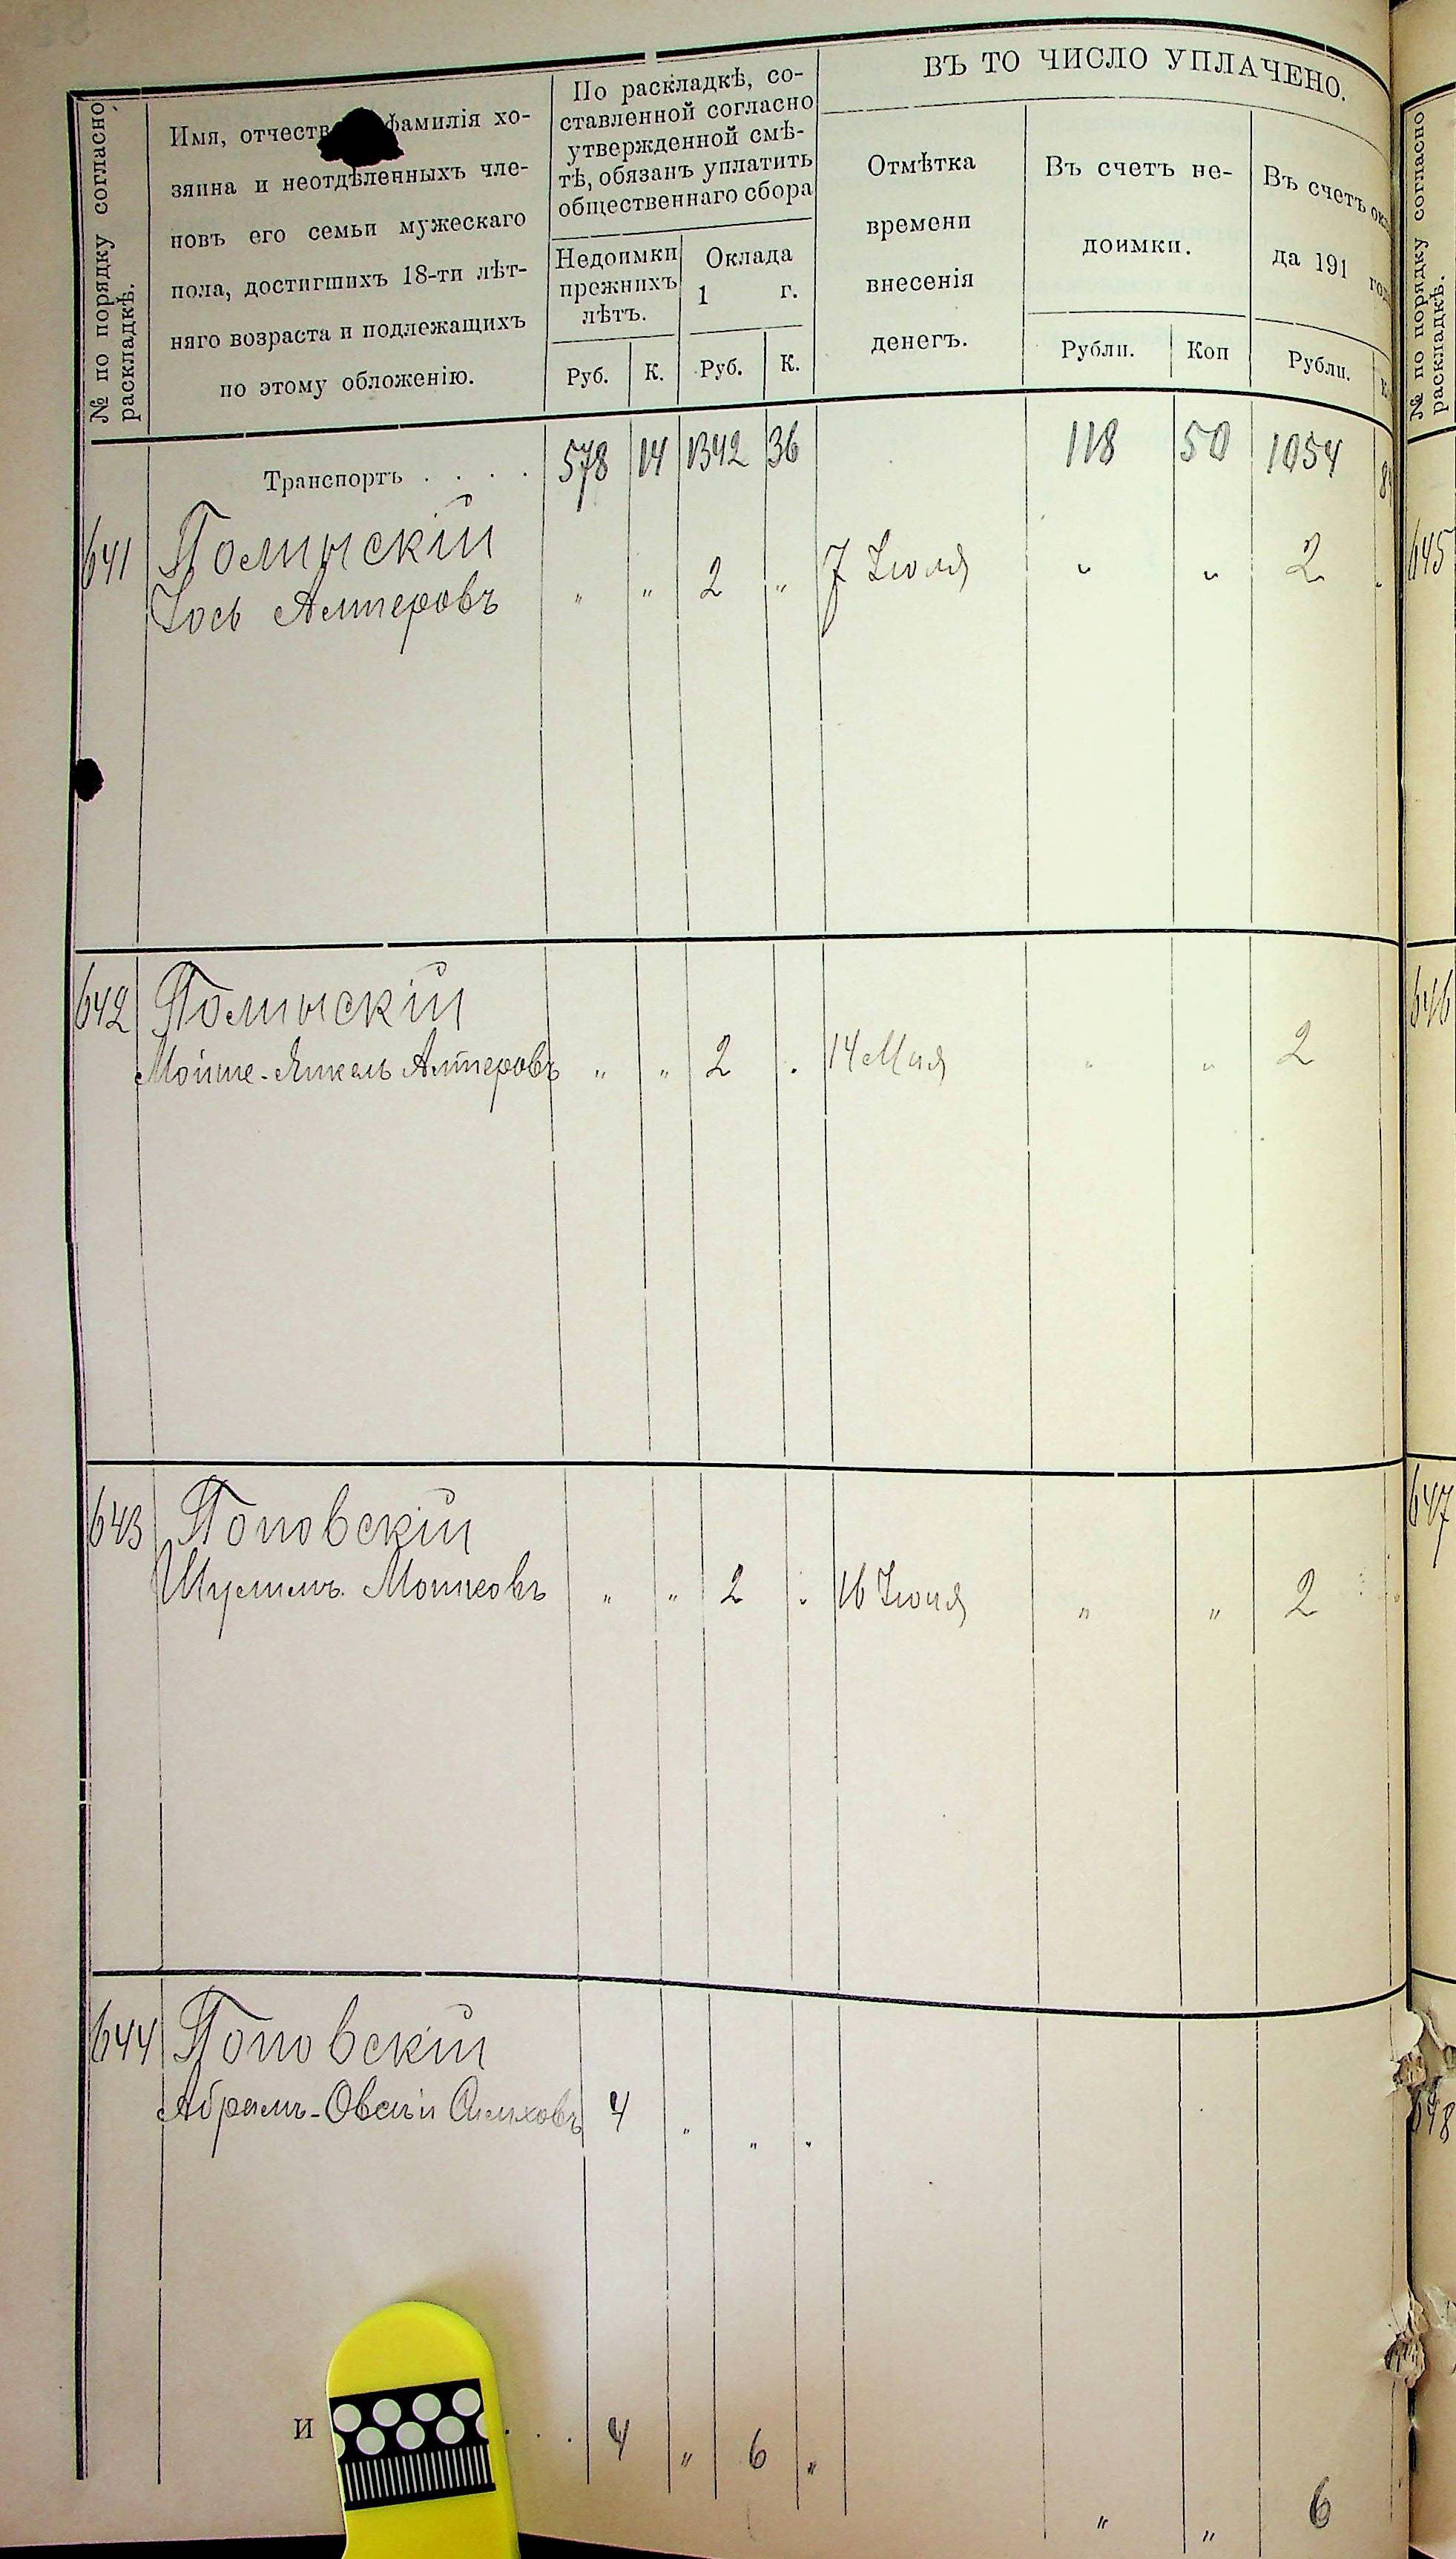 № по порядку согласно
раскладкѣ.
Имя, отчеств фамилія хо-
зяина и неотдѣленныхъ чле-
новъ его семьи мужескаго
пола, достигшихъ 18-ти лѣт-
няго возраста и подлежащихъ
по этому обложенію.
По раскладкѣ, со-
ставленной согласно
утвержденной смѣ-
тѣ, обязанъ уплатить
общественнаго сбора
Недоимки
прежнихъ
лѣтъ.
Оклада
1 г.
Руб. К. Руб. К.
ВЪ ТО ЧИСЛО УПЛАЧЕНО.
Отмѣтка
времени
внесенія
денегъ.
Въ счетъ не-
доимки.
Рубли. Коп
Въ счетъ ок
да 191 го
Рубли.
Транспортъ . . . . 578 14 1342 36 118 50 1054
641 Полынскій
Іось Алтеровъ " " 2 " 7 Іюля " " 2
642 Полынскій
Мойше-Янкель Алтеровъ " " 2 . 14 Мая " " 2
643 Поповскій
Шулимъ Мошковъ " " 2 " 16 Іюня " " 2
644 Поповскій
Абрамъ-Овсѣй 4 " " "
И . . . 4 " 6 " " " 6
№ по порядку согласно
раскладкѣ.
645
646
647
648